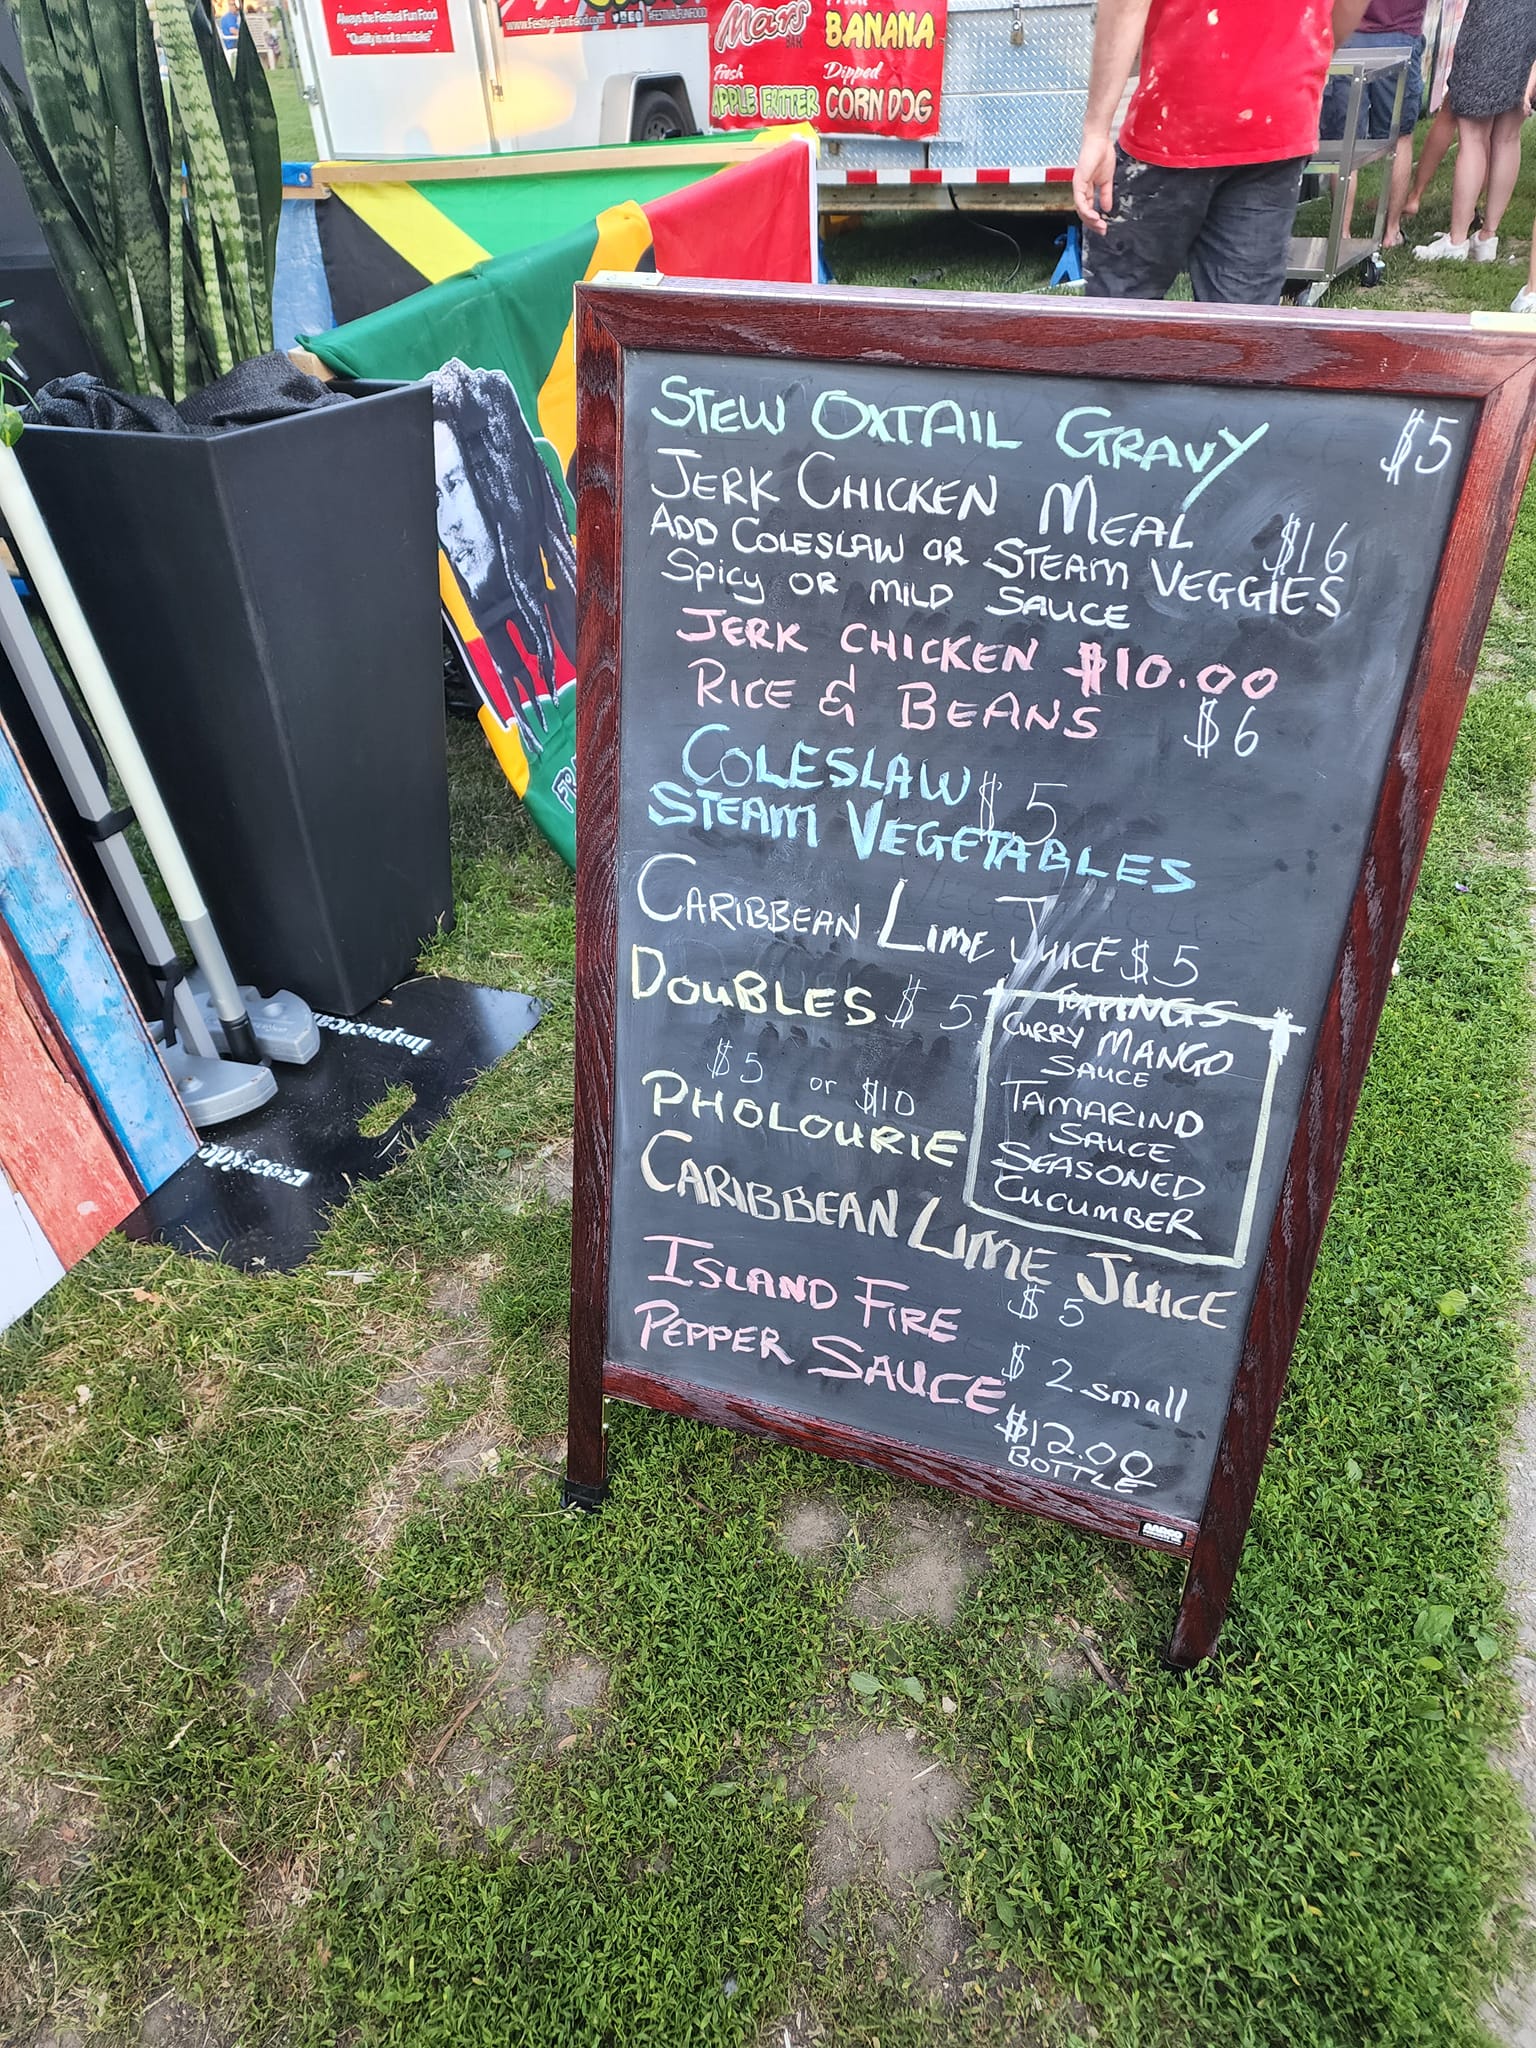 Always the Festival Fun Food
"Quality is not a mistake"
www.FestivalFunFood.com
FESTIVALFUNFOOD
Mars
BAR
BANANA
Fresh
APPLE FRITTER
Dipped
CORN DOG
STEW OXTAIL GRAVY $5
JERK CHICKEN MEAL $16
ADD COLESLAW OR STEAM VEGGIES
SPICY OR MILD SAUCE
JERK CHICKEN $10.00
RICE & BEANS $6
COLESLAW $5
STEAM VEGETABLES
CARIBBEAN LIME JUICE $5
DOUBLES $5
$5 or $10
PHOLOURIE
TOPPINGS
CURRY MANGO
SAUCE
TAMARIND
SAUCE
SEASONED
CUCUMBER
CARIBBEAN LIME JUICE
$5
ISLAND FIRE
PEPPER SAUCE
$2 small
$12.00
BOTTLE